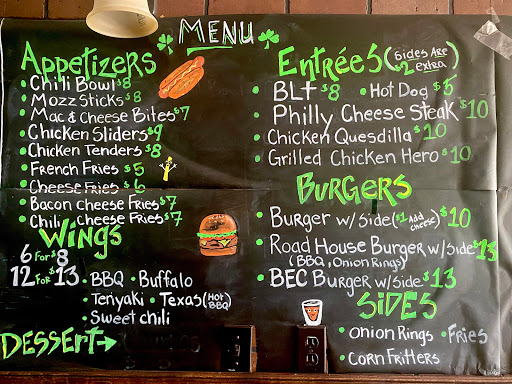 MENU
Appetizers
• Chili Bowl $8
• Mozz Sticks $8
• Mac & Cheese Bites $7
• Chicken Sliders $9
• Chicken Tenders $8
• French Fries $5
• Cheese Fries $6
• Bacon Cheese Fries $7
• Chili Cheese Fries $7
Wings
6 For $8
12 For $13
• BBQ • Buffalo
Teriyaki • Texas (Hot BBQ)
• Sweet chili
DESSERT→
Entrées (Sides Are $2 extra)
• BLT $8 • Hot Dog $5
• Philly Cheese Steak $10
• Chicken Quesdilla $10
• Grilled Chicken Hero $10
BURGERS
• Burger w/Side ($1 Add Cheese) $10
• Road House Burger w/Side $13
(BBQ, Onion Rings)
• BEC Burger w/Side $13
SiDES
• Onion Rings • Fries
• Corn Fritters